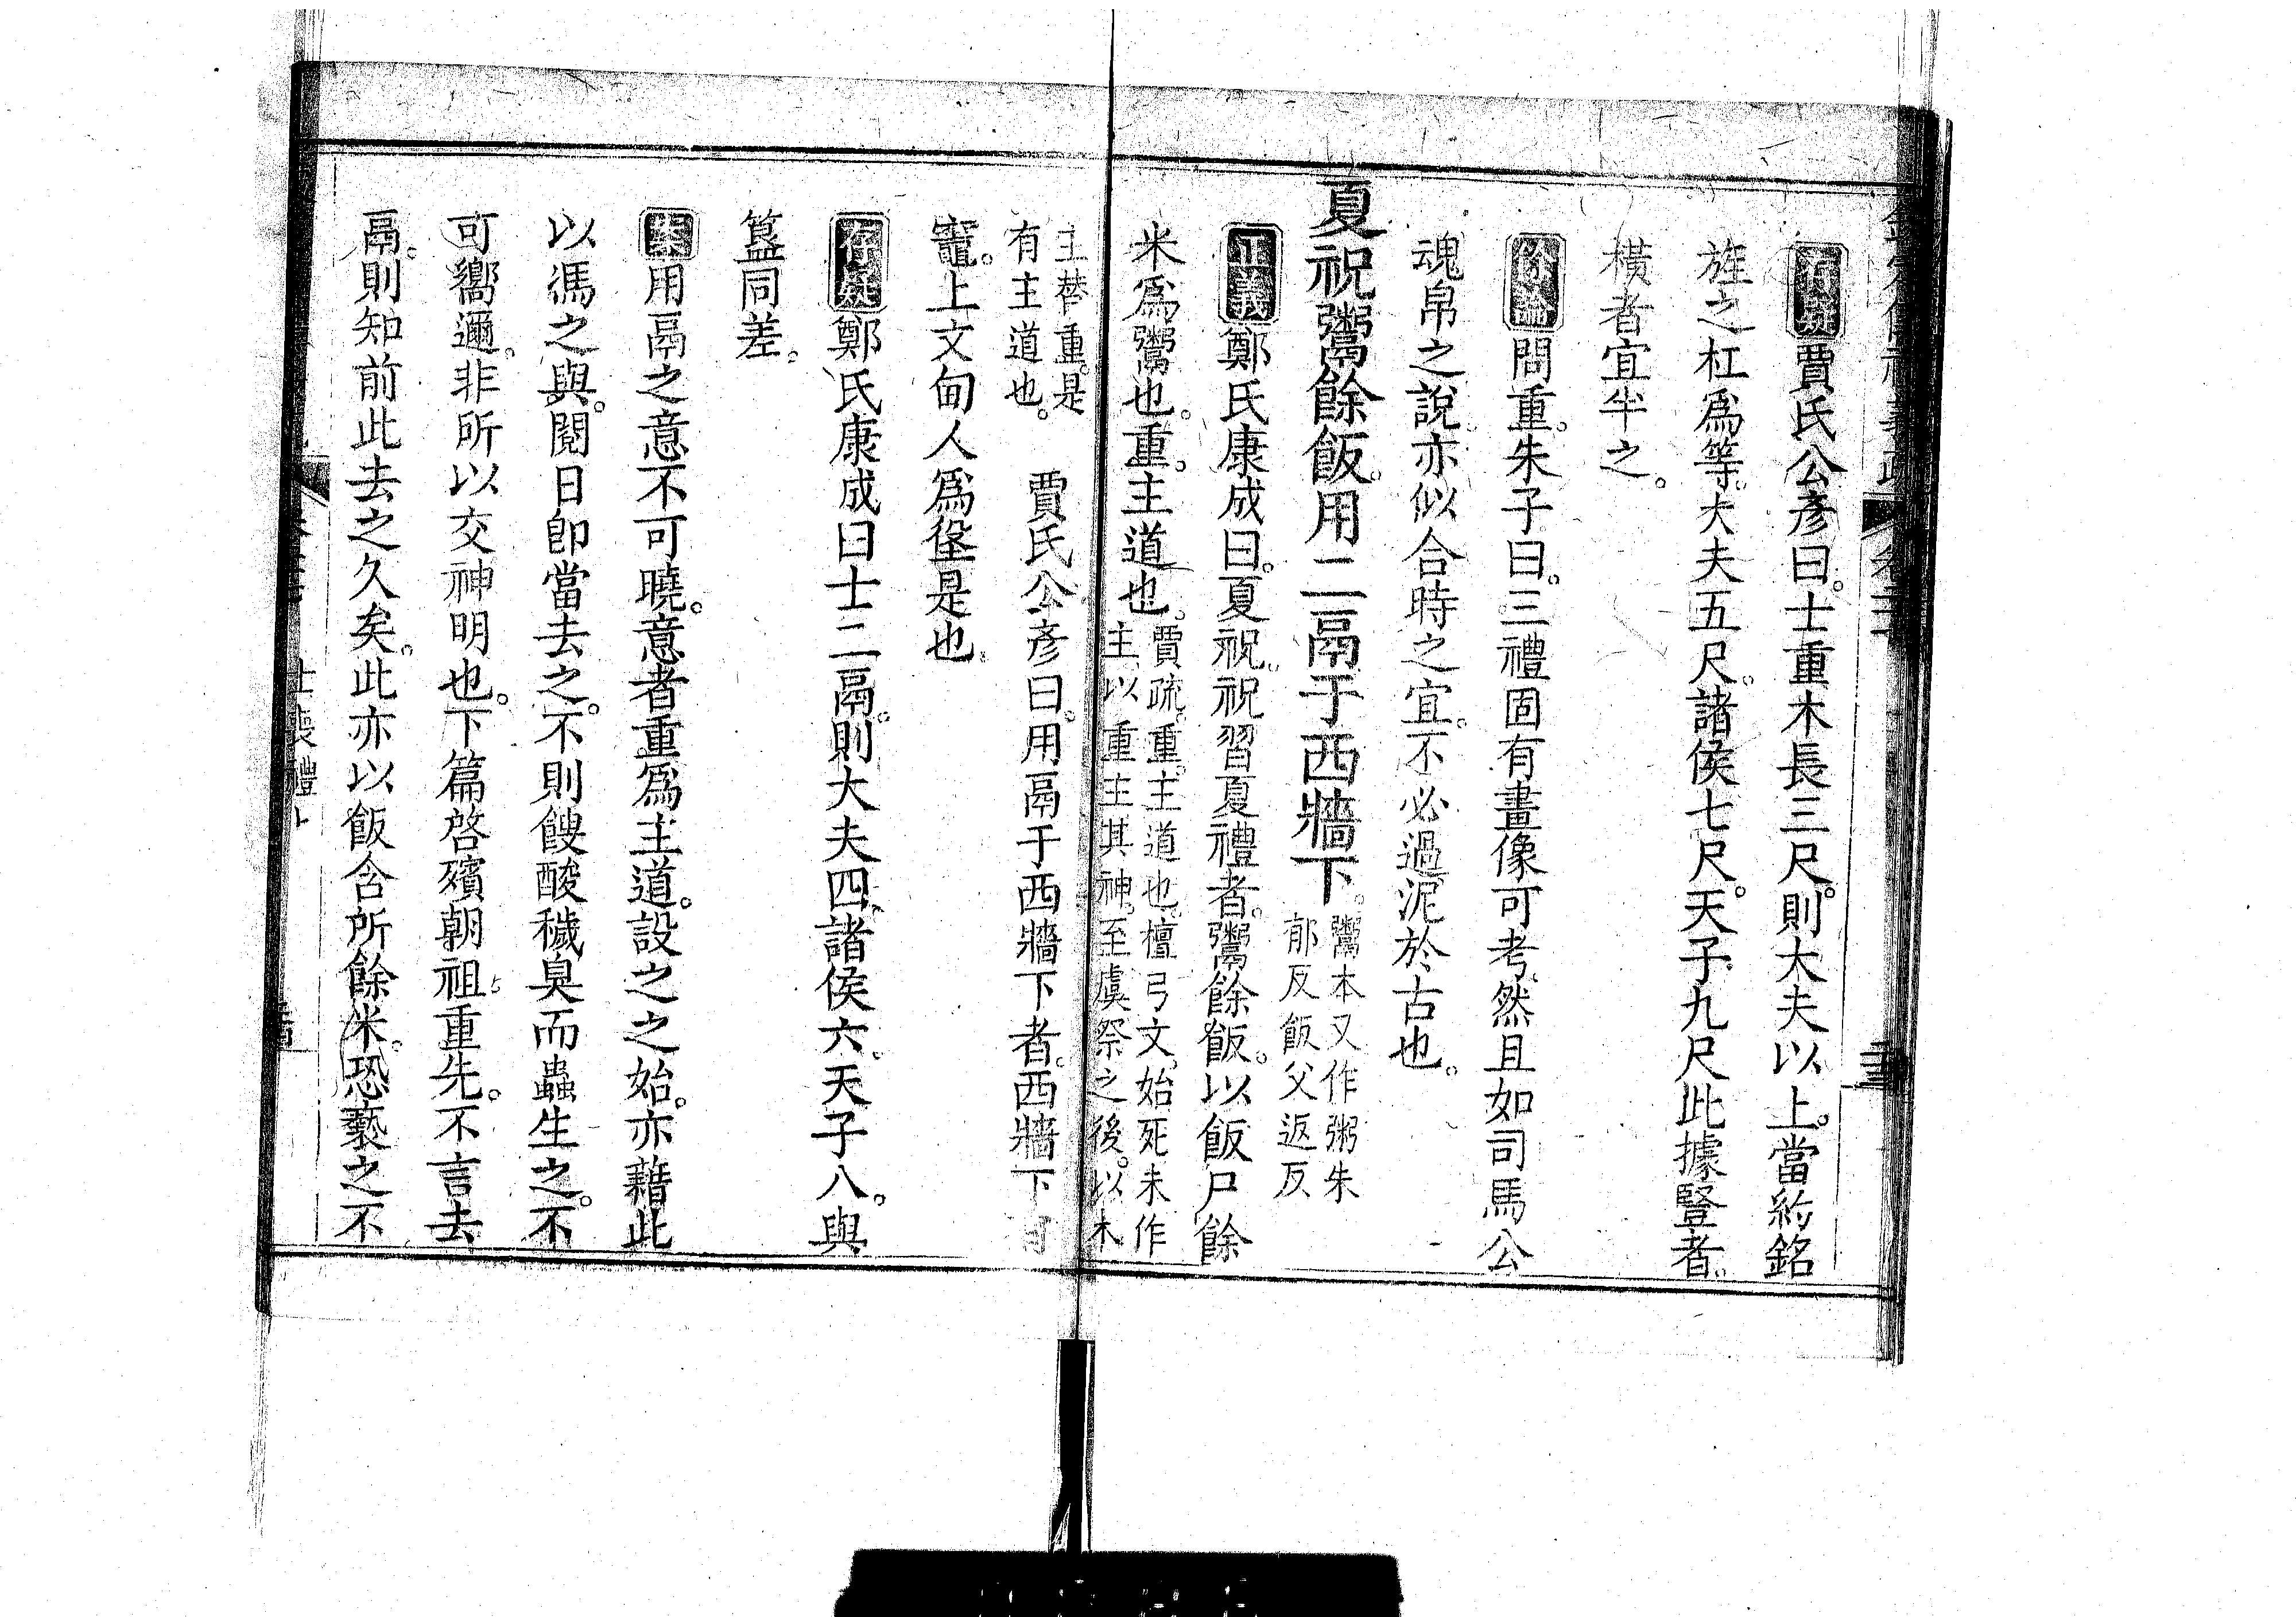 存疑賈氏公彥曰。士重木長三尺。則大夫以上。當約銘
旌之杠爲等。大夫五尺。諸侯七尺。天子九尺此據豎者。
橫者宜半之。
餘論問重。朱子曰。三禮固有畫像可考。然且如司馬公
魂帛之說。亦似合時之宜。不必過泥於古也。
夏祝鬻餘飯。用二鬲于西牆下。鬻本又作粥朱
郁反飯父返反
正義鄭氏康成曰。夏祝。祝習夏禮者。鬻餘飯。以飯尸餘
米爲鬻也。重。主道也。賈疏。重。主道也。檀弓文。始死未作
主。以重主其神。至虞祭之後。以木
主替重。是
有主道也。 賈氏公彥曰。用鬲于西牆下者。西牆下有
竈。上文甸人爲垼是也。
存疑鄭氏康成曰士二鬲。則大夫四。諸侯六。天子八。與
簋同差。
案用鬲之意不可曉。意者重爲主道。設之之始。亦藉此
以馮之與。閱日卽當去之。不則餿酸穢臭而蟲生之。不
可嚮邇。非所以交神明也。下篇啓殯朝祖。重先。不言去
鬲。則知前此去之久矣。此亦以飯含所餘米。恐褻之不
士喪禮上